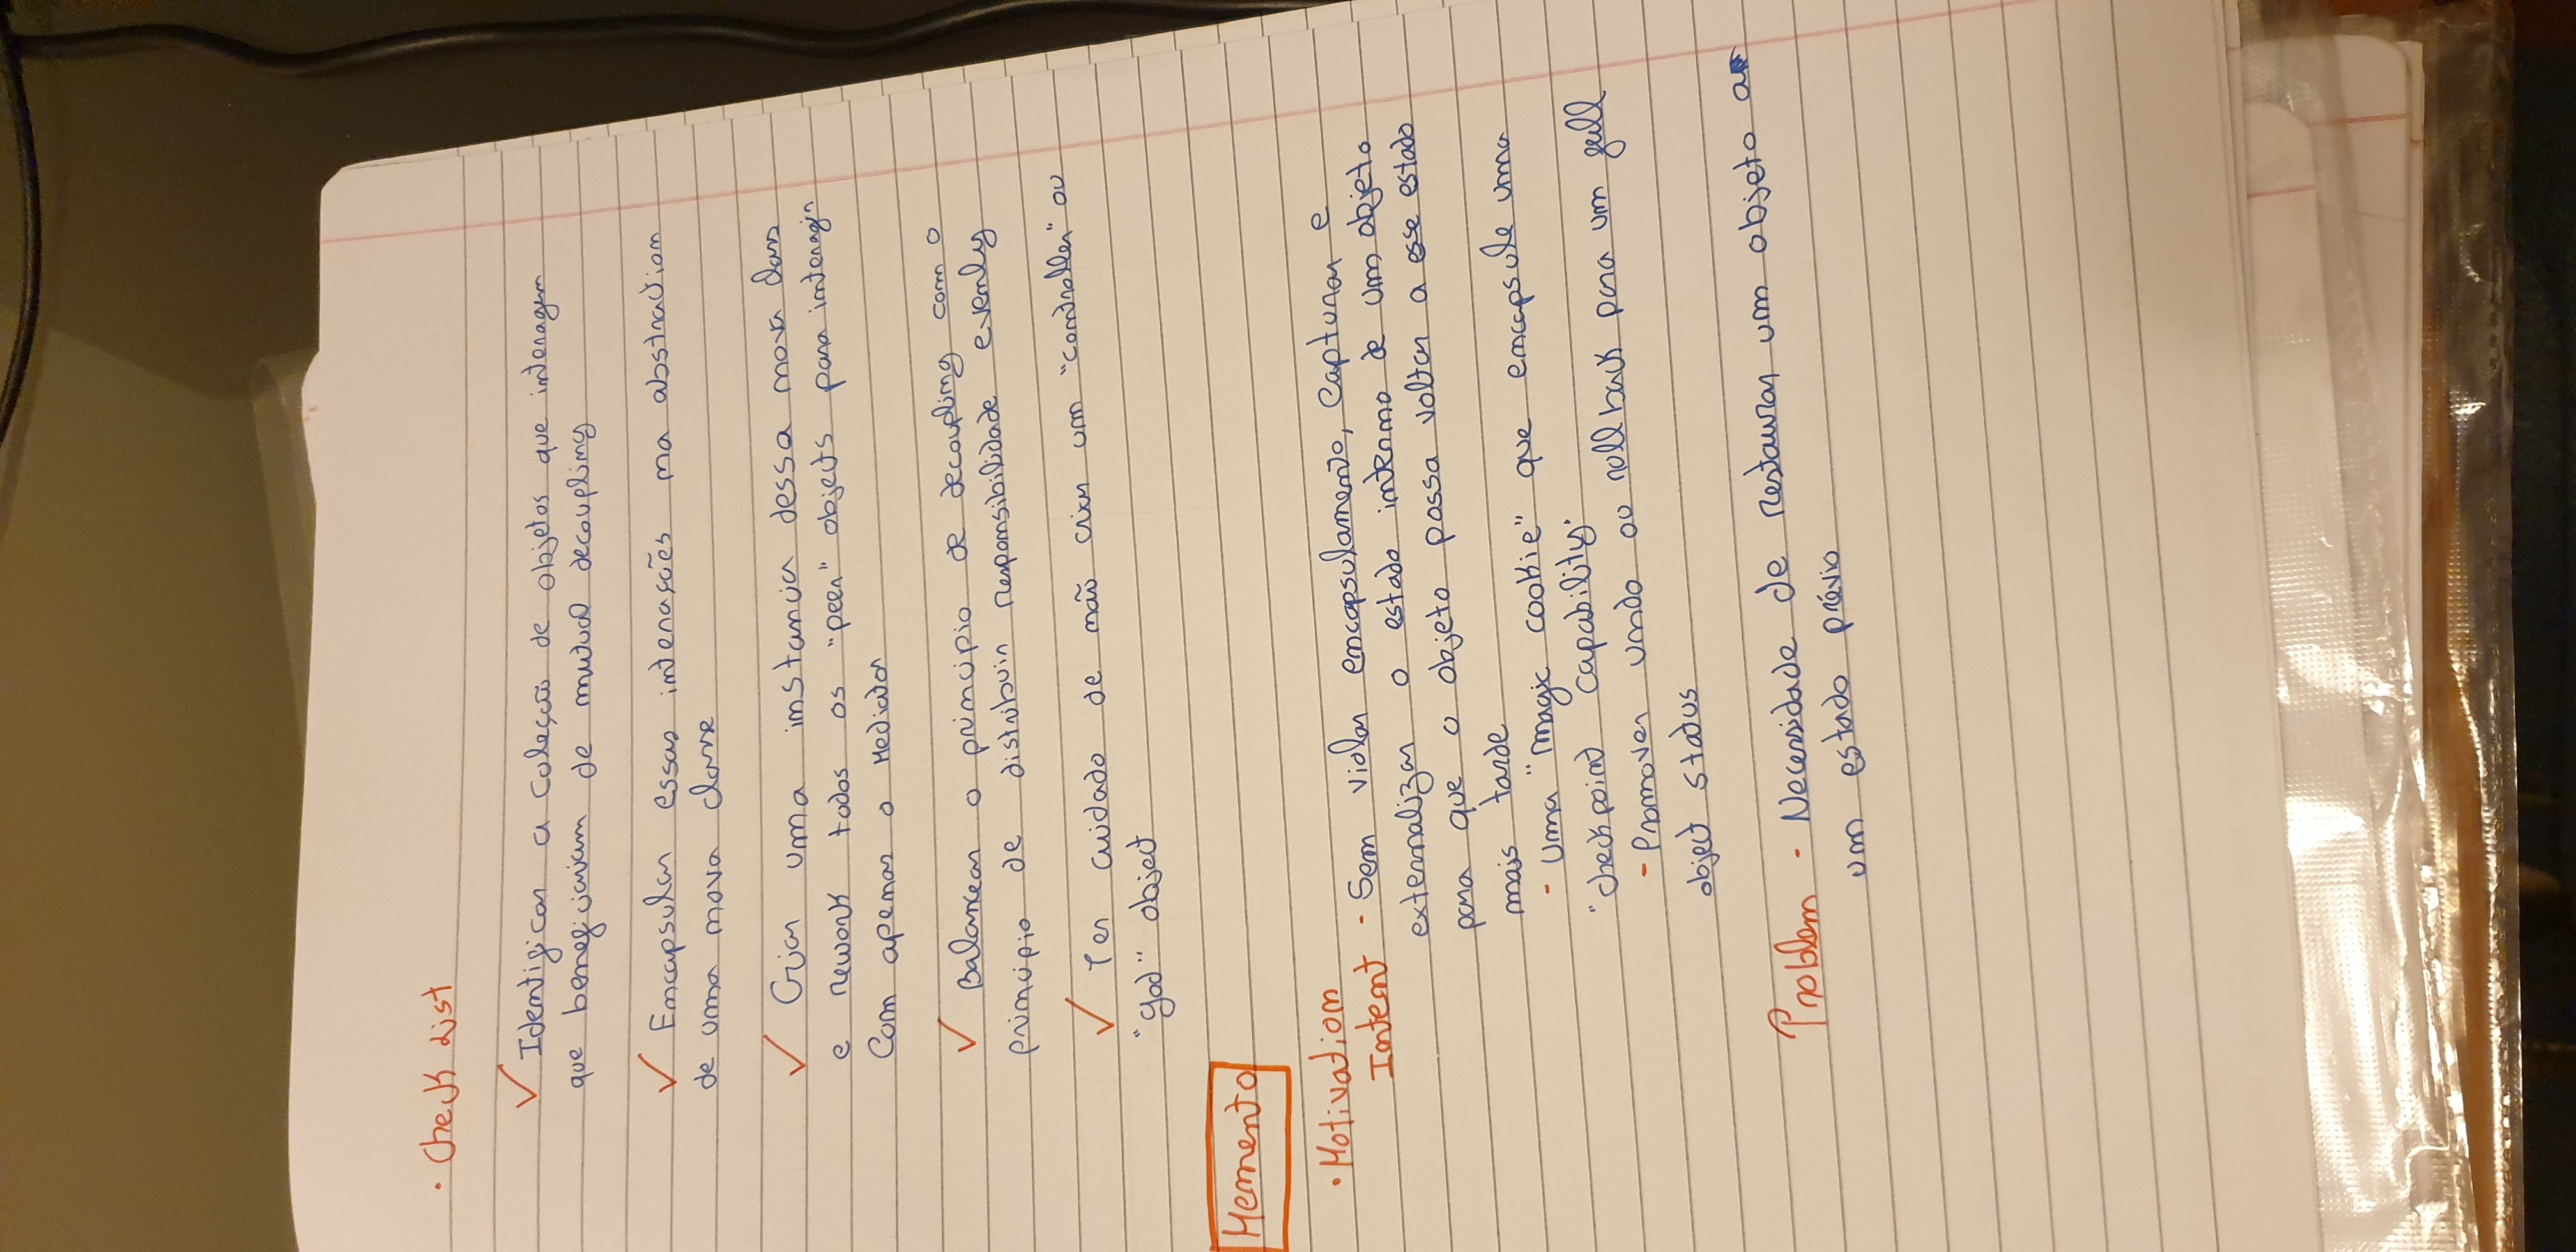 • Check List
✓ Identificar a coleção de objetos que interagem
que beneficiariam de mutual decoupling
✓ Encapsular essas interações na abstraction
de uma nova classe
✓ Criar uma instancia dessa nova class
e rework todos os "peer" objects para interagir
Com apenas o Mediator
✓ Balancear o principio de decoupling com o
principio de distribuir responsibilidade evenly
✓ Ter cuidado de não criar um "controller" ou
"god" object
Memento
• Motivation
Intent - Sem violar encapsulamento, capturar e
externalizar o estado interno de um objeto
para que o objeto possa voltar a esse estado
mais tarde
- Uma "magic cookie" que encapsule uma
"checkpoint capability"
- Promover undo ou rollback para um full
object status
Problem - Necessidade de restaurar um objeto a
um estado prévio